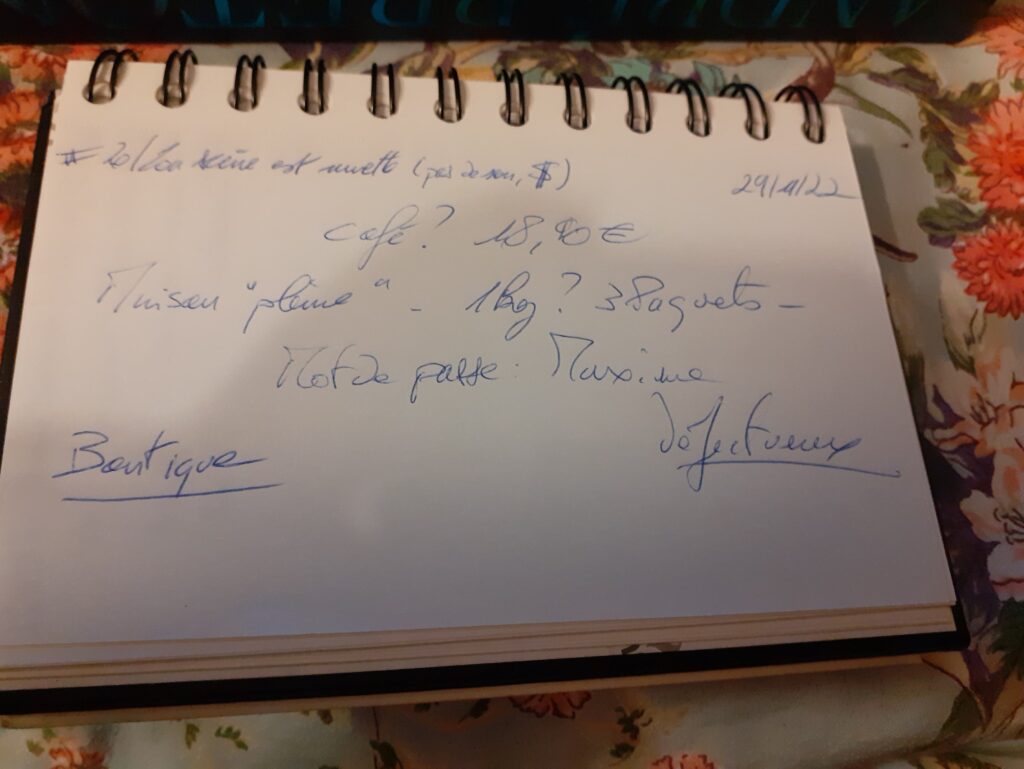 # 20/ La scène est muette (pas de son, $)
29/11/22
Café? 18,90€
Maison "pleine" - 1kg? 3 Paquets -
Mot de passe: Maxime
Défectueux
Boutique